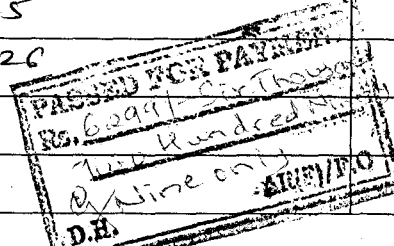 5
26
PASSED FOR PAYMENT
Rs. 6299/- Six Thousand
Two Hundred Ninety
Nine only
D.H. AH(E)/P.O